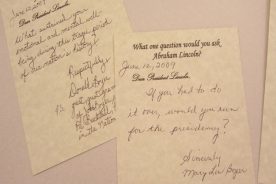 June 12, 2009
Dear President Lincoln,
What sustained your
emotional and mental well-
being during this tragic period
of this nation's history?
Respectfully,
Donald Boyer
great great grandson
of
in the Nation
What one question would you ask
Abraham Lincoln?
June 12, 2009
Dear President Lincoln,
If you had to do
it over, would you run
for the presidency?
Sincerely
Mary Lou Boyer